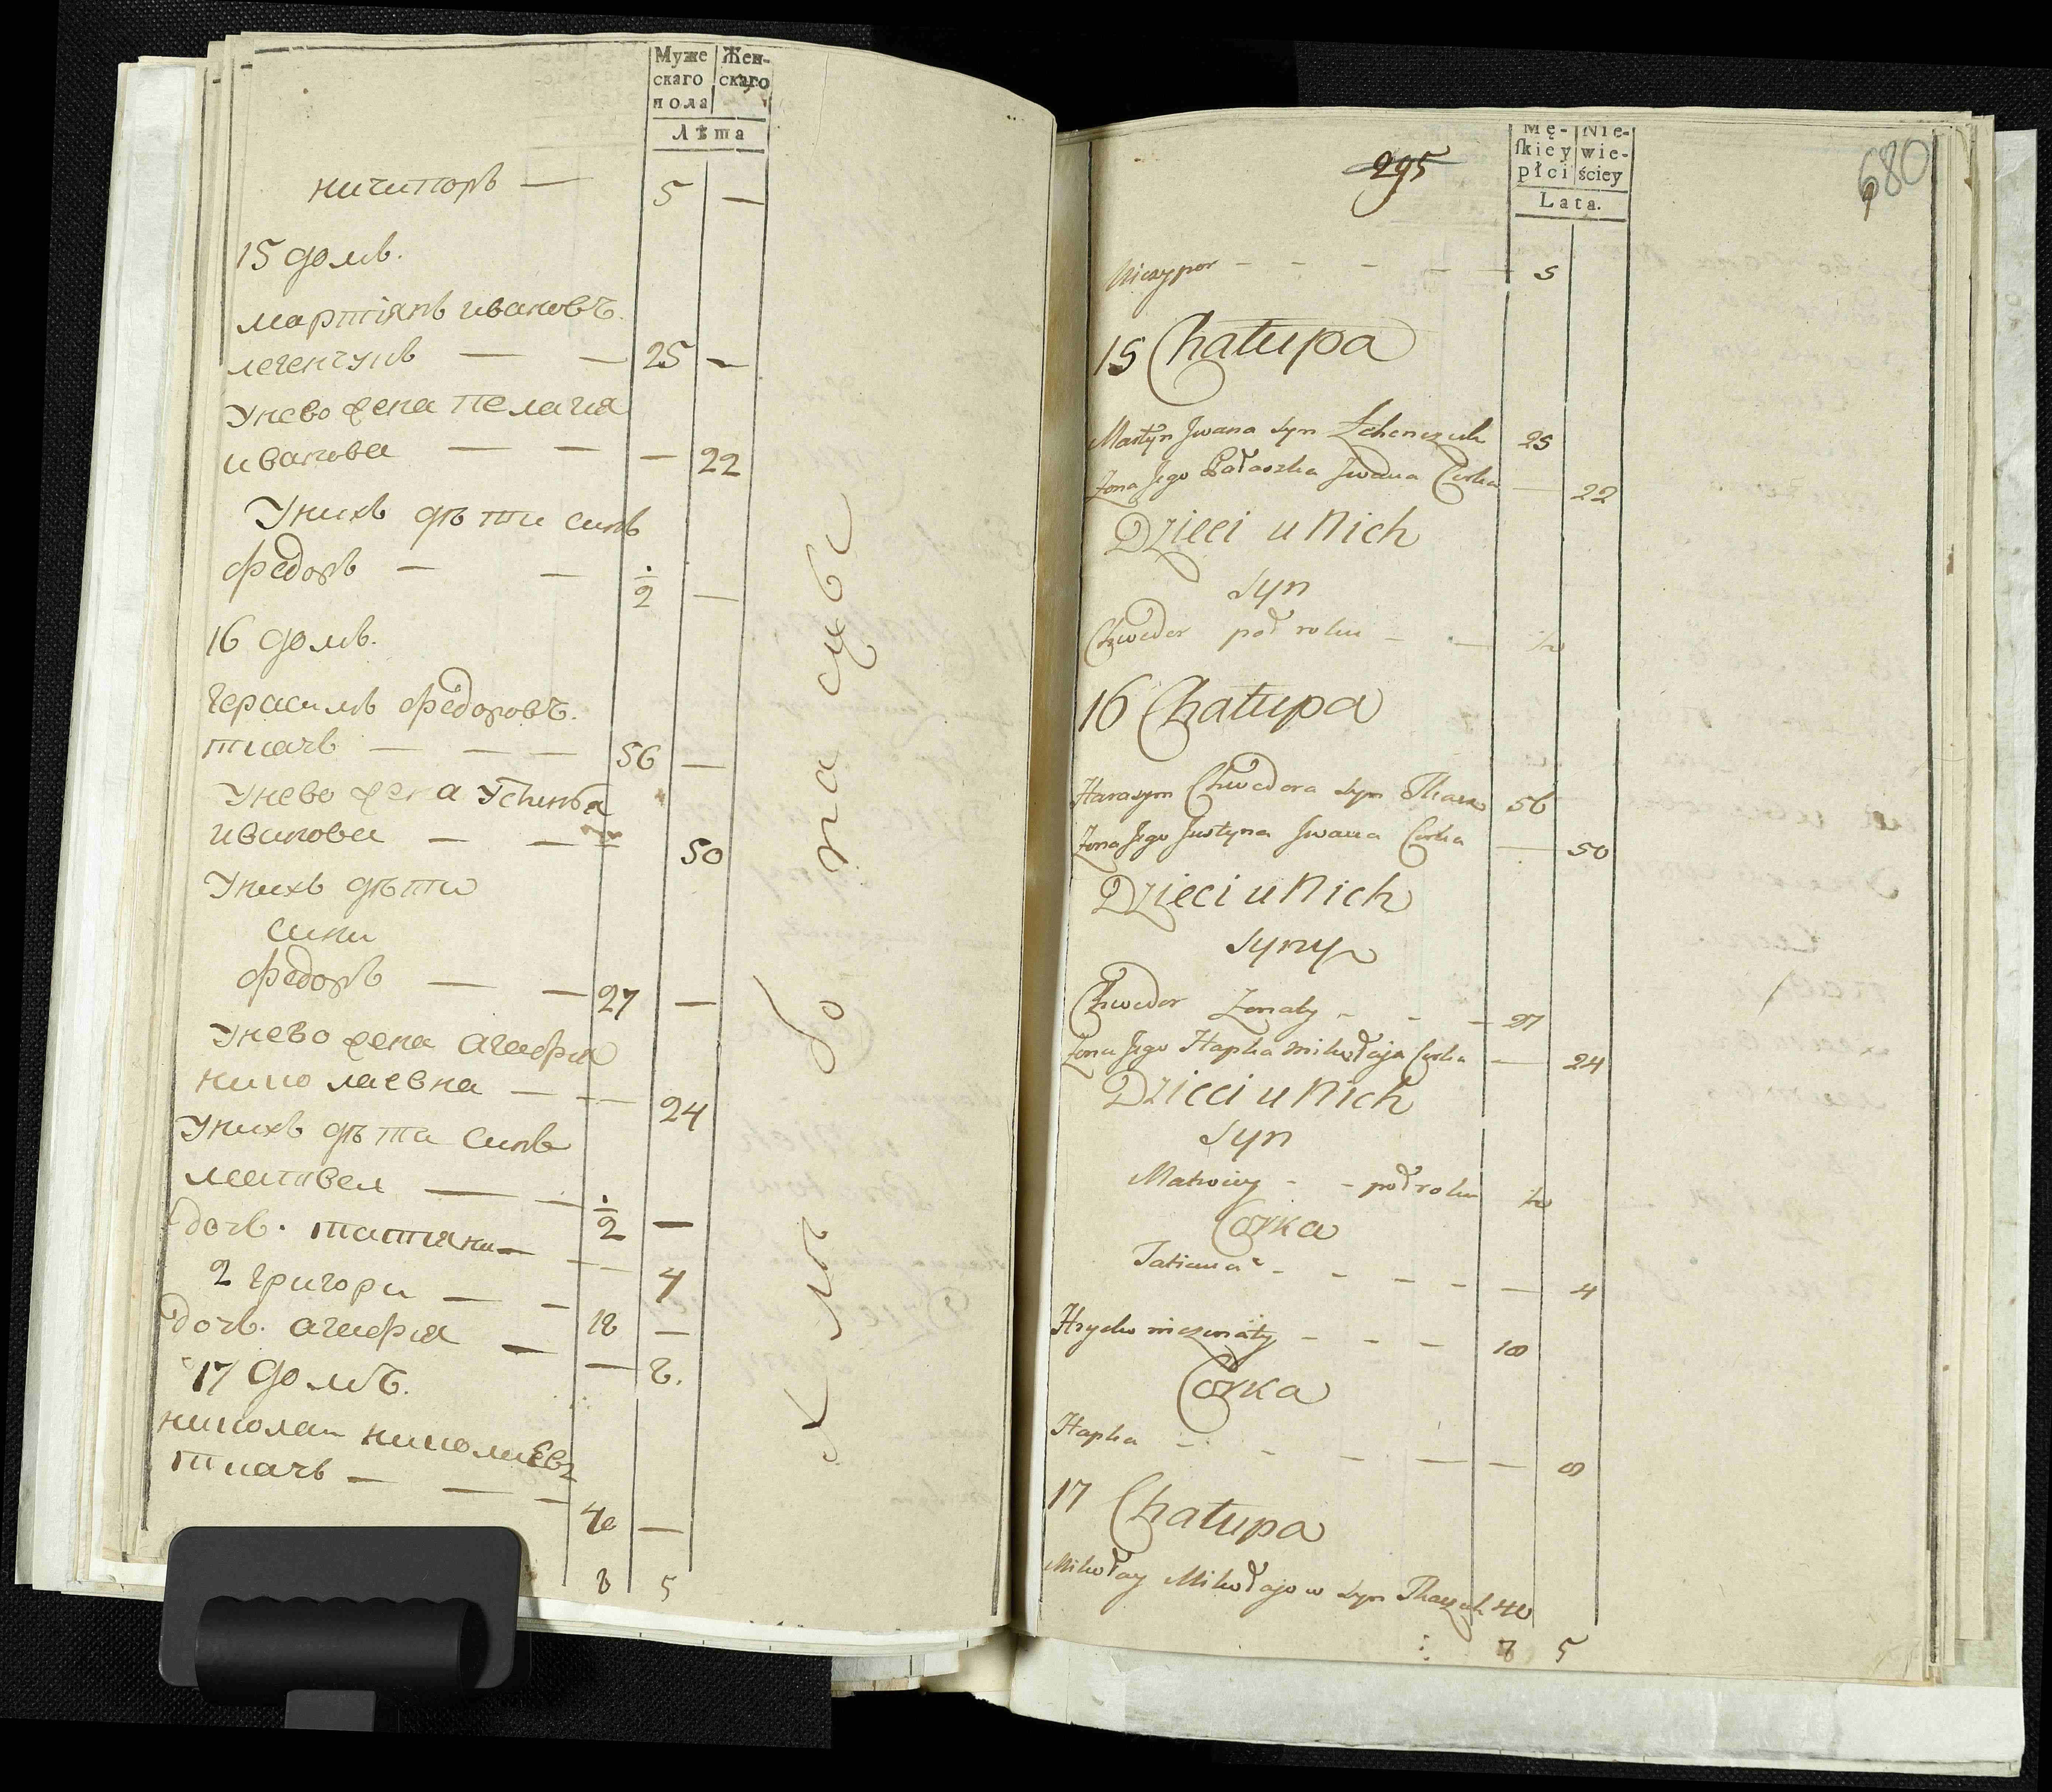 Муже Жен-
скаго скаго
пола
Лѣта
ничипоръ — 5 —
15 домъ.
мартiянъ ивановъ
легенчукъ — — 25 —
Унево жена пелагия
иванова — — — 22
Унихъ дѣти синъ
федоръ — — ½ —
16 домъ.
герасимъ федоровъ.
ткачъ — — — 56 —
Унево жена Устинья
иванова — — 50
Унихъ дѣти
сини
федоръ — — 27 —
Унево жена агафия
николаевна — — 24
Унихъ дѣти синъ
матвеи — — ½ —
дочъ. татияни — — 4
2 григори — — 18 —
дочъ. агафия — — 8.
17 домъ.
николаи николаевъ
ткачъ — — — 40 —
8 5
295
680
Mę- Nie-
skiey wie-
płci ściey
Lata.
Niczypor - - - - - 5
15 Chałupa
Martyn Jwana syn 25
Zona Jego Pałaszka Jwana Corka — 22
Dzieci u Nich
Syn
Chwedor poł roku - - — ½
16 Chałupa
Harasym Chwedora syn Tkacz 56
Zona Jego Justyna Jwana Corka — 50
Dzieci u Nich
Syny
Chwedor Zonaty - - - 27
Zona Jego Hapka Mikołaja Corka — 24
Dzieci u Nich
Syn
Matwiey - - poł roku ½
Corka
Tatiana - - - - — 4
Hrycko niezonaty - - - 18
Corka
Hapka - - - — — 8
17 Chałupa
Mikołay Mikołajow syn Tkaczuk 40
8 5